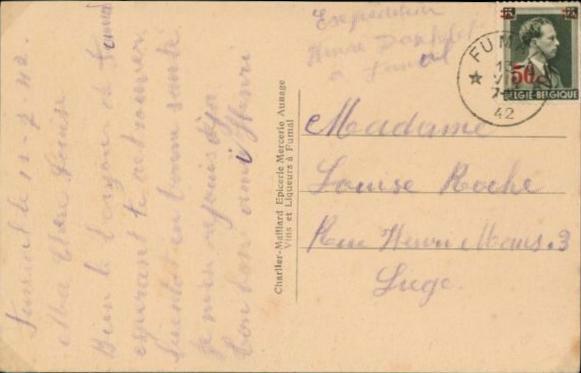 Fumal le 12.7.42.
Ma Chère Louise
Bien le bonjour de Fumal
espérant te retrouver
bientôt en bonne santé.
Je m'en réjouis déjà
ton bon ami Henri
Expéditeur
Henri
à Fumal
Charlier-Maillard Epicerie Mercerie Aunage
Vins et Liqueurs à Fumal
FUMAL
12
VII
42
50c
BELGIE-BELGIQUE
Madame
Louise Roche
Rue Henri Maus. 3
Liege.